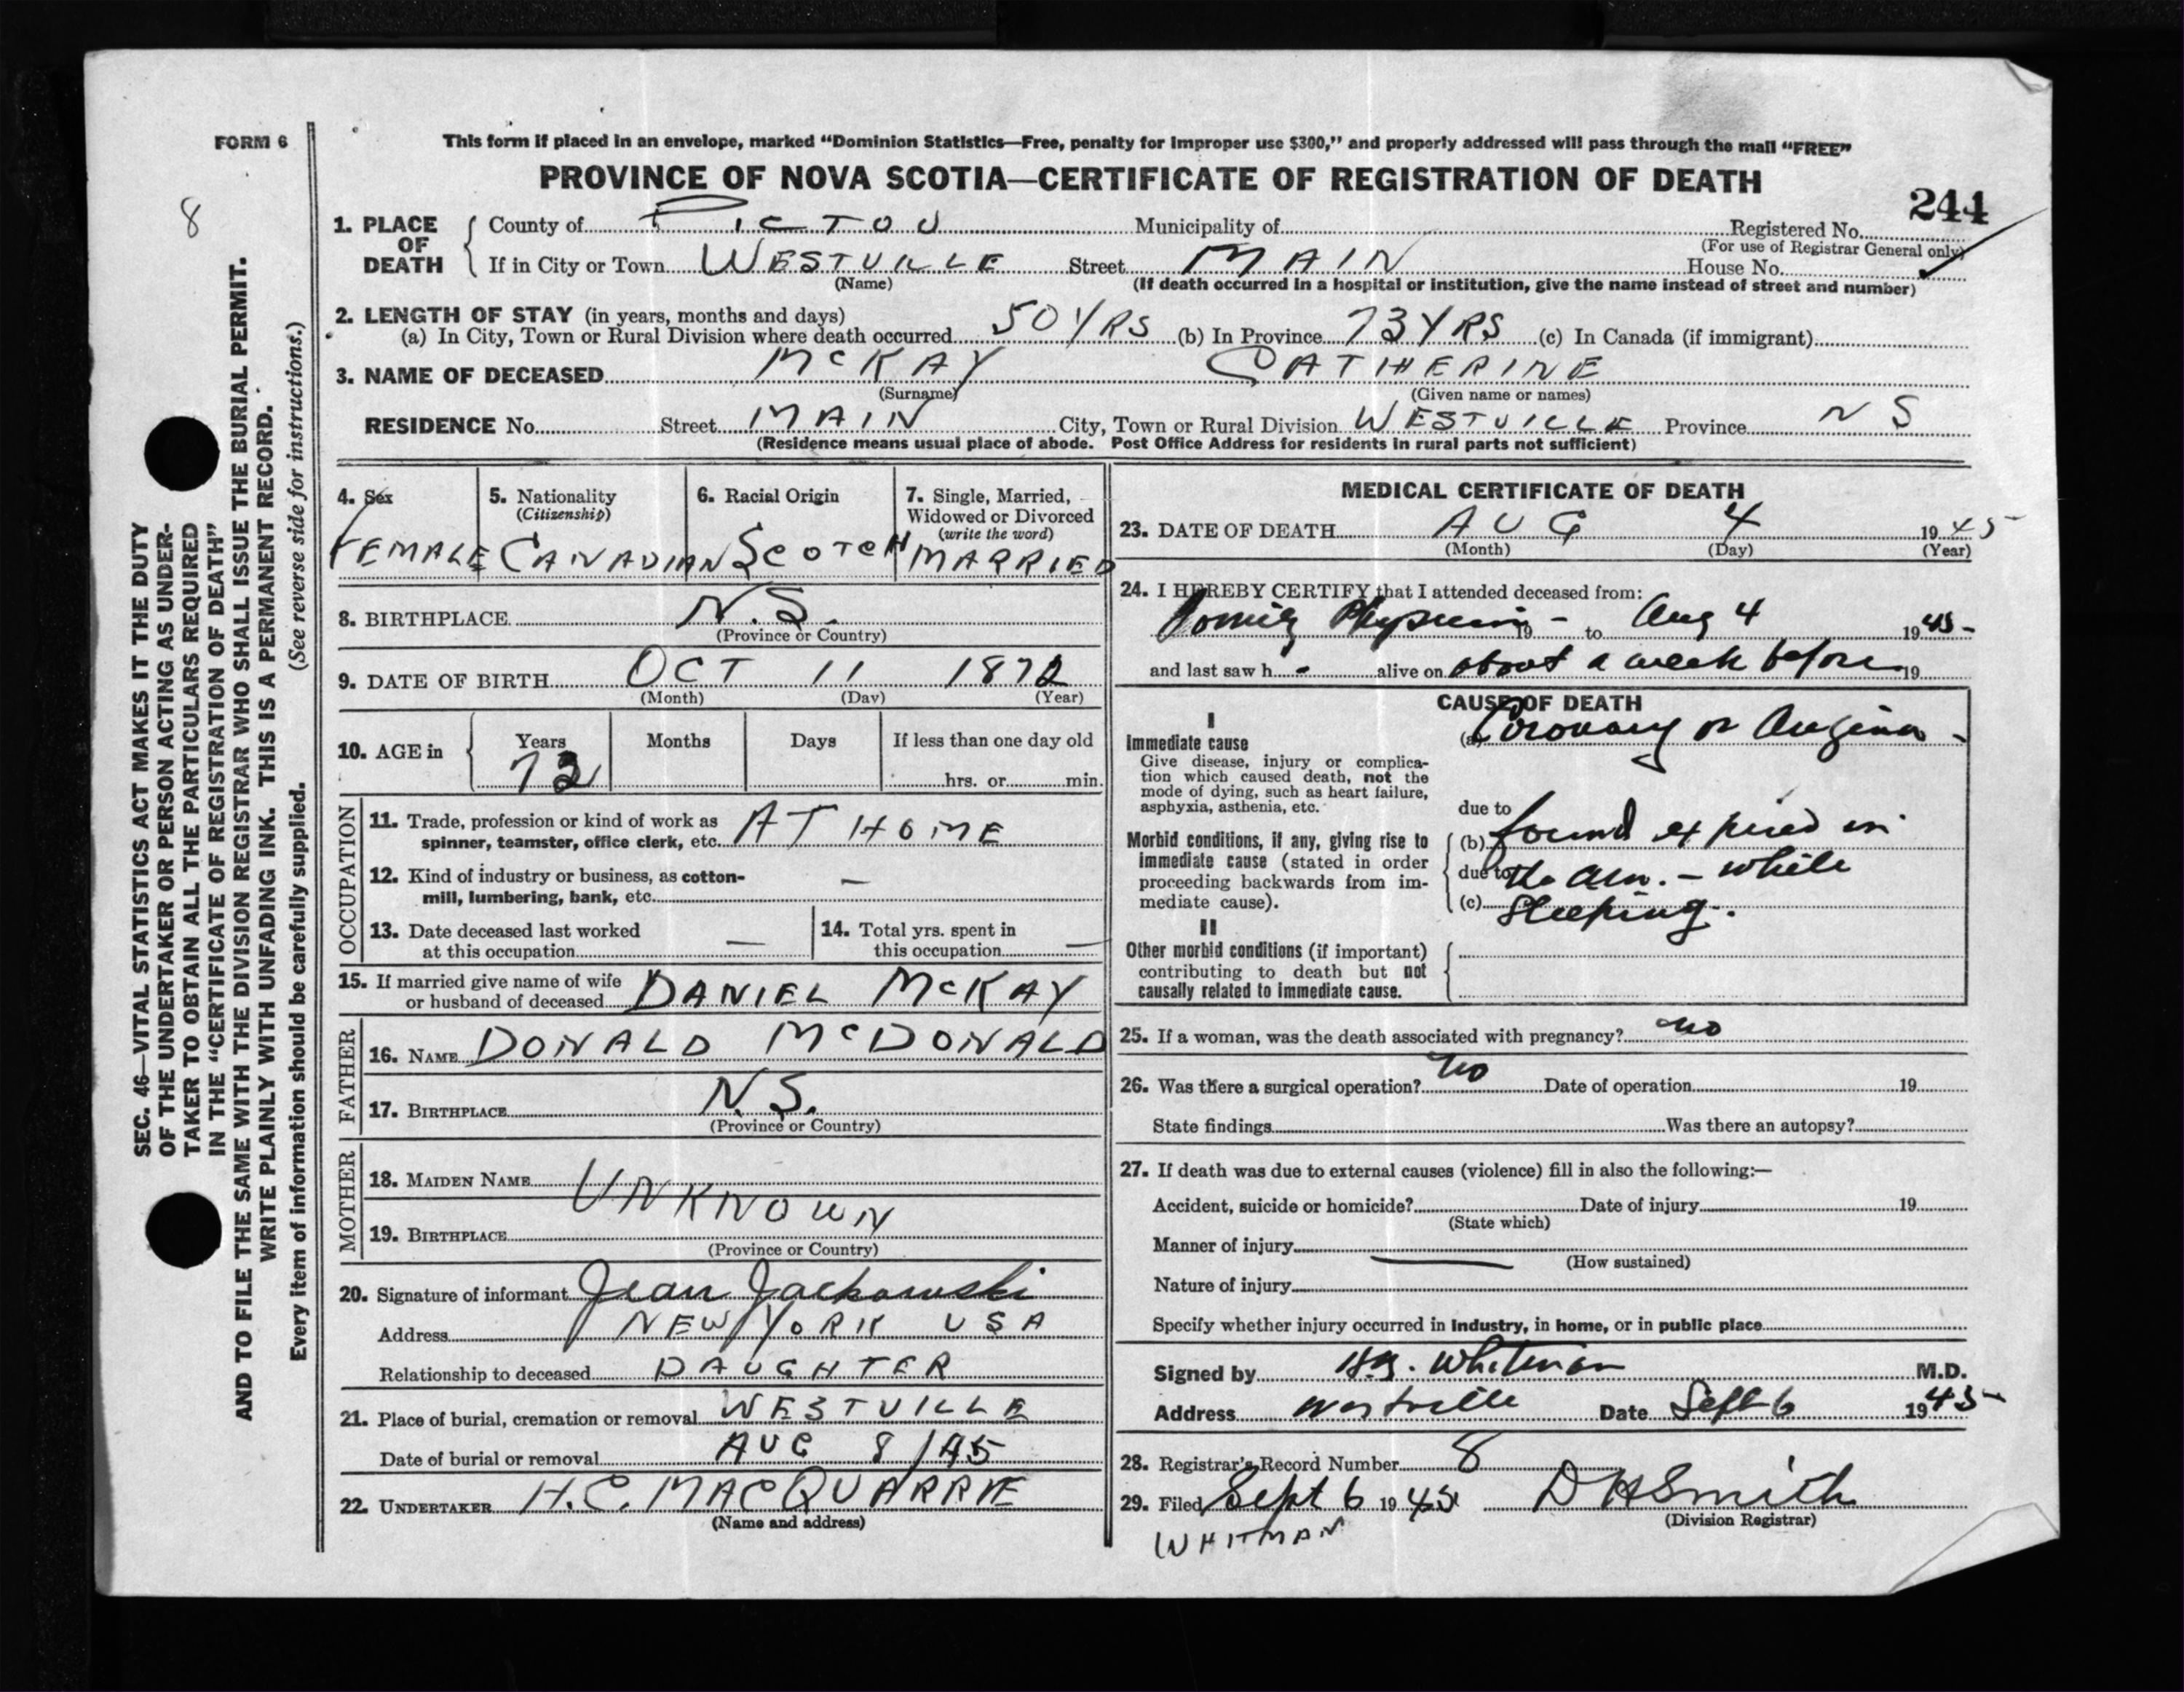 FORM 6
This form if placed in an envelope, marked "Dominion Statistics—Free, penalty for improper use $300," and properly addressed will pass through the mail "FREE"
PROVINCE OF NOVA SCOTIA—CERTIFICATE OF REGISTRATION OF DEATH
244
8
1. PLACE OF DEATH County of PICTOU Municipality of Registered No.
(For use of Registrar General only)
If in City or Town WESTVILLE Street MAIN House No.
(Name) (If death occurred in a hospital or institution, give the name instead of street and number)
2. LENGTH OF STAY (in years, months and days)
(a) In City, Town or Rural Division where death occurred 50 YRS (b) In Province 73 YRS (c) In Canada (if immigrant)
3. NAME OF DECEASED MCKAY CATHERINE
(Surname) (Given name or names)
RESIDENCE No. Street MAIN City, Town or Rural Division WESTVILLE Province N S
(Residence means usual place of abode. Post Office Address for residents in rural parts not sufficient)
SEC. 46—VITAL STATISTICS ACT MAKES IT THE DUTY
OF THE UNDERTAKER OR PERSON ACTING AS UNDER-
TAKER TO OBTAIN ALL THE PARTICULARS REQUIRED
IN THE "CERTIFICATE OF REGISTRATION OF DEATH"
AND TO FILE THE SAME WITH THE DIVISION REGISTRAR WHO SHALL ISSUE THE BURIAL PERMIT.
WRITE PLAINLY WITH UNFADING INK. THIS IS A PERMANENT RECORD.
Every item of information should be carefully supplied. (See reverse side for instructions.)
4. Sex
FEMALE
5. Nationality
(Citizenship)
CANADIAN
6. Racial Origin
SCOTCH
7. Single, Married,
Widowed or Divorced
(write the word)
MARRIED
8. BIRTHPLACE N.S.
(Province or Country)
9. DATE OF BIRTH OCT 11 1872
(Month) (Day) (Year)
10. AGE in Years Months Days If less than one day old
72 hrs. or min.
OCCUPATION
11. Trade, profession or kind of work as
spinner, teamster, office clerk, etc. AT HOME
12. Kind of industry or business, as cotton-
mill, lumbering, bank, etc. —
13. Date deceased last worked
at this occupation —
14. Total yrs. spent in
this occupation —
15. If married give name of wife
or husband of deceased DANIEL MCKAY
FATHER
16. NAME DONALD MCDONALD
17. BIRTHPLACE N.S.
(Province or Country)
MOTHER
18. MAIDEN NAME
UNKNOWN
19. BIRTHPLACE
(Province or Country)
20. Signature of informant Jean Jackowski
Address NEW YORK USA
Relationship to deceased DAUGHTER
21. Place of burial, cremation or removal WESTVILLE
Date of burial or removal AUG 8/45
22. UNDERTAKER H.C. MACQUARRIE
(Name and address)
MEDICAL CERTIFICATE OF DEATH
23. DATE OF DEATH AUG 4 1945
(Month) (Day) (Year)
24. I HEREBY CERTIFY that I attended deceased from:
Family Physician 19 — to Aug 4 1945
and last saw h - alive on about a week before 19
CAUSE OF DEATH
I
Immediate cause
Give disease, injury or complica-
tion which caused death, not the
mode of dying, such as heart failure,
asphyxia, asthenia, etc.
(a) Coronary or Angina -
due to
Morbid conditions, if any, giving rise to
immediate cause (stated in order
proceeding backwards from im-
mediate cause).
(b) found expired in
due to the am. — while
(c) sleeping.
II
Other morbid conditions (if important)
contributing to death but not
causally related to immediate cause.
25. If a woman, was the death associated with pregnancy? no
26. Was there a surgical operation? no Date of operation 19
State findings Was there an autopsy?
27. If death was due to external causes (violence) fill in also the following:—
Accident, suicide or homicide? Date of injury 19
(State which)
Manner of injury —
(How sustained)
Nature of injury
Specify whether injury occurred in industry, in home, or in public place
Signed by Whitman M.D.
Address Westville Date Sept 6 1945
28. Registrar's Record Number 8
29. Filed Sept 6 1945 D H Smith
(Division Registrar)
WHITMAN